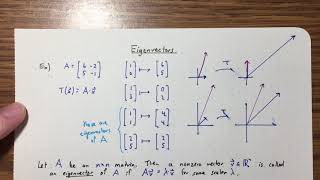 Eigenvectors
Ex) A = [6 -2; 5 -1]
T(x⃗) = A·x⃗
[1; 0] ↦ [6; 5]
[1; 3] ↦ [0; 2]
T
These are eigenvectors of A
[1; 1] ↦ [4; 4]
[2; 5] ↦ [2; 5]
T
Let A be an n×n matrix. Then a nonzero vector v⃗ ∈ ℝⁿ is called
an eigenvector of A if Av⃗ = λv⃗ for some scalar λ.